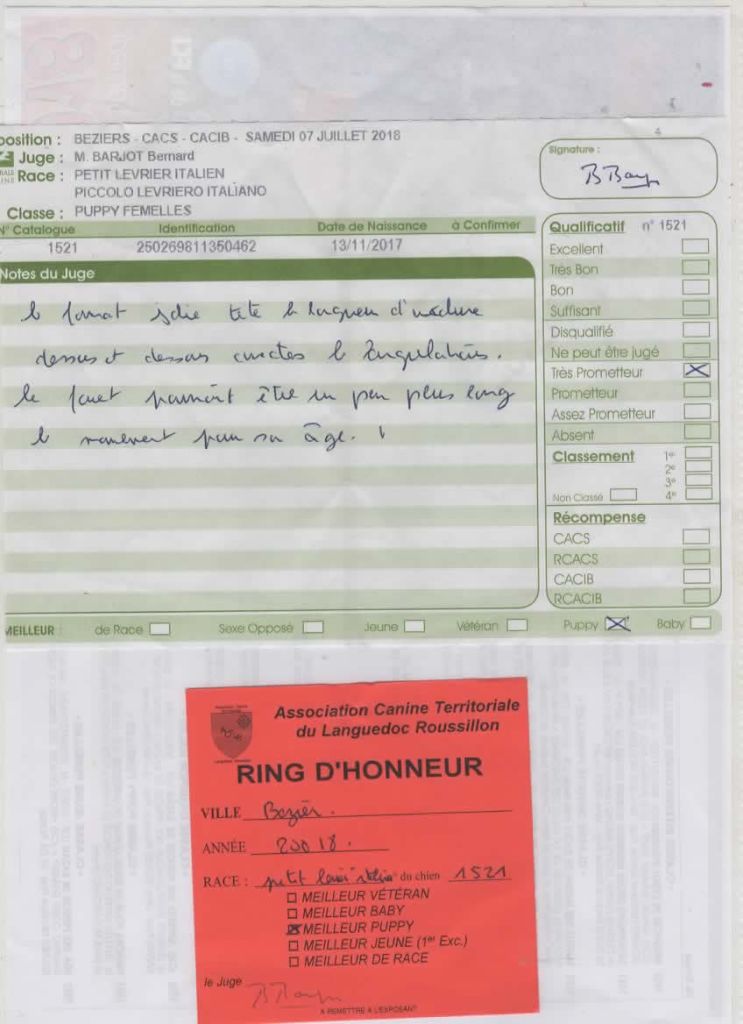 position : BEZIERS - CACS - CACIB - SAMEDI 07 JUILLET 2018
Juge : M. BARJOT Bernard
Race : PETIT LEVRIER ITALIEN
PICCOLO LEVRIERO ITALIANO
Classe : PUPPY FEMELLES
Signature :
N° Catalogue Identification Date de Naissance à Confirmer
1521 250269811350462 13/11/2017
Notes du Juge
le format jolie tête la longueur d'encolure
dessus et dessous correctes les angulations.
le fouet pourrait être un peu plus long
le mouvement pour son âge.
Qualificatif n° 1521
Excellent
Très Bon
Bon
Suffisant
Disqualifié
Ne peut être jugé
Très Prometteur
Prometteur
Assez Prometteur
Absent
Classement 1er
2e
3e
Non Classé 4e
Récompense
CACS
RCACS
CACIB
RCACIB
MEILLEUR : de Race Sexe Opposé Jeune Vétéran Puppy Baby
Association Canine Territoriale
du Languedoc Roussillon
RING D'HONNEUR
VILLE Bezier.
ANNÉE 20018.
RACE : petit levrier du chien 1521
MEILLEUR VÉTÉRAN
MEILLEUR BABY
MEILLEUR PUPPY
MEILLEUR JEUNE (1er Exc.)
MEILLEUR DE RACE
le Juge
A REMETTRE A L'EXPOSANT